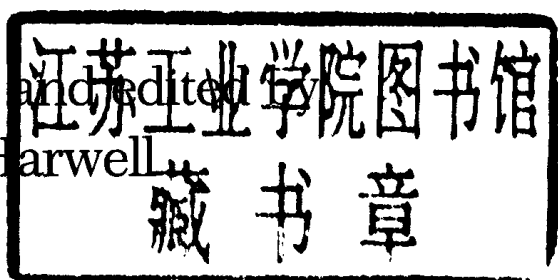 江苏工业学院图书馆
and edited by
Harwell
藏书章